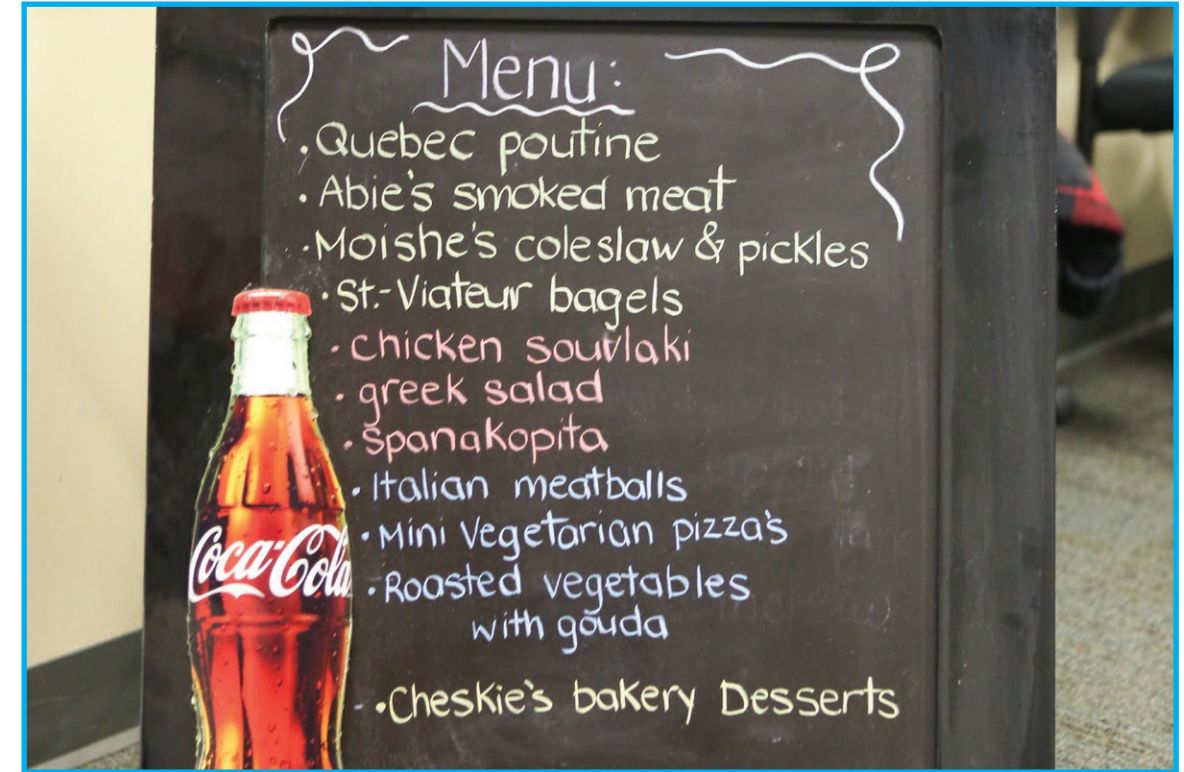 Menu:
• Quebec poutine
• Abie's smoked meat
• Moishe's coleslaw & pickles
• St.-Viateur bagels
• chicken souvlaki
• greek salad
• spanakopita
• Italian meatballs
• Mini Vegetarian pizza's
• Roasted vegetables
with gouda
• Cheskie's bakery Desserts
Coca-Cola